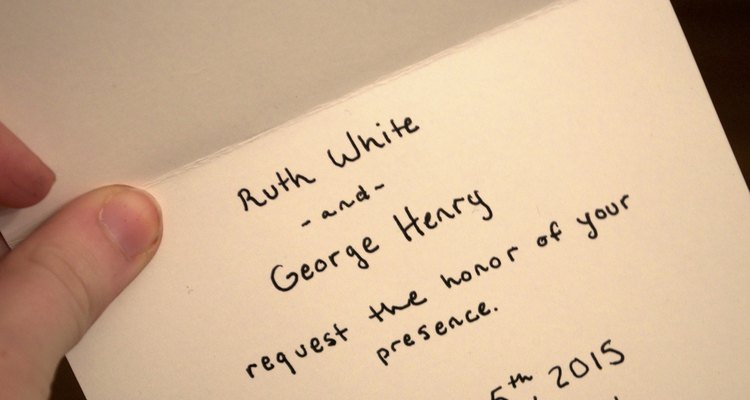 Ruth White
-and-
George Henry
request the honor of your
presence.
5th 2015